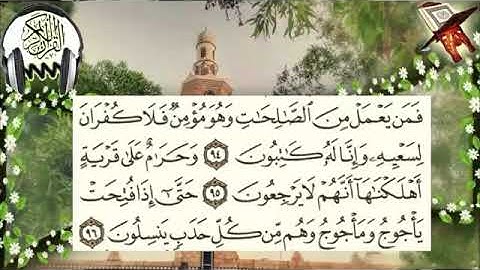 فَمَن يَعْمَلْ مِنَ الصَّالِحَاتِ وَهُوَ مُؤْمِنٌ فَلَا كُفْرَانَ
لِسَعْيِهِ وَإِنَّا لَهُ كَاتِبُونَ ٩٤ وَحَرَامٌ عَلَى قَرْيَةٍ
أَهْلَكْنَاهَا أَنَّهُمْ لَا يَرْجِعُونَ ٩٥ حَتَّى إِذَا فُتِحَتْ
يَأْجُوجُ وَمَأْجُوجُ وَهُم مِّن كُلِّ حَدَبٍ يَنسِلُونَ ٩٦